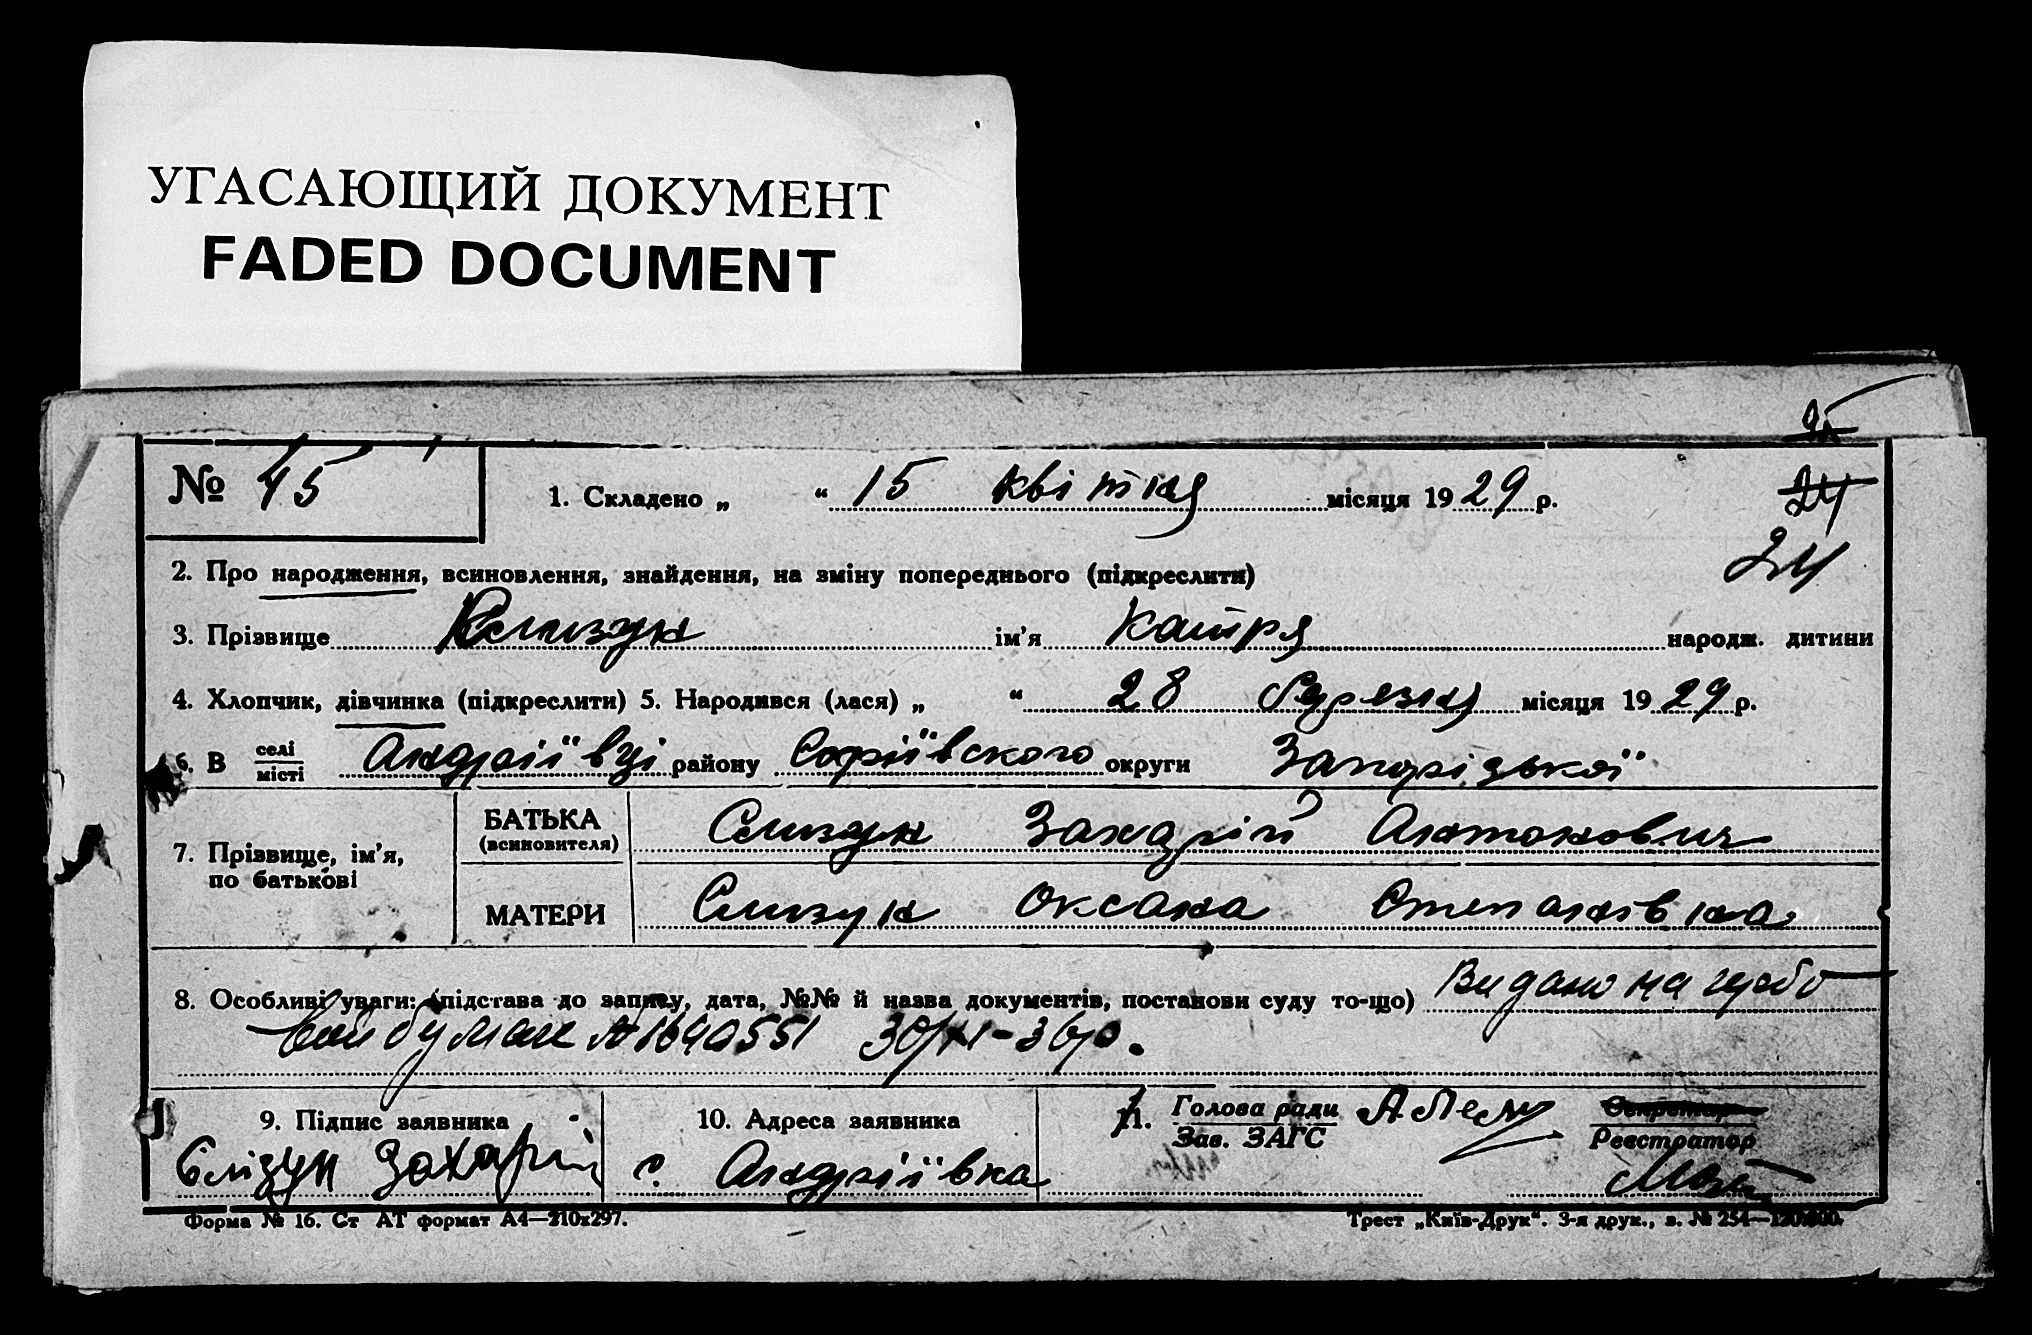 УГАСАЮЩИЙ ДОКУМЕНТ
FADED DOCUMENT
25
24
№ 45 1. Складено „ “ 15 квітня місяця 1929 р.
24
2. Про народження, всиновлення, знайдення, на зміну попереднього (підкреслити)
3. Прізвище Єлизун ім'я Катря народж. дитини
4. Хлопчик, дівчинка (підкреслити) 5. Народився (лася) „ “ 28 березня місяця 1929 р.
6. В селі/місті Андріївці району Софіївского округи Запорізької
7. Прізвище, ім'я, по батькові
БАТЬКА (всиновителя) Єлизун Захарій Антонович
МАТЕРИ Єлизун Оксана Степанівна
8. Особливі уваги: (підстава до запису, дата, №№ й назва документів, постанови суду то-що) Видано на грубо
вой бумаге № 1640551 30/XI-36 р.
9. Підпис заявника 10. Адреса заявника 11. Голова ради/Зав. ЗАГС Секретар/Реєстратор
Єлізун Захарій с. Андріївка
Форма № 16. Ст АТ формат А4—210х297. Трест „Київ-Друк“. 3-я друк., в. № 254—